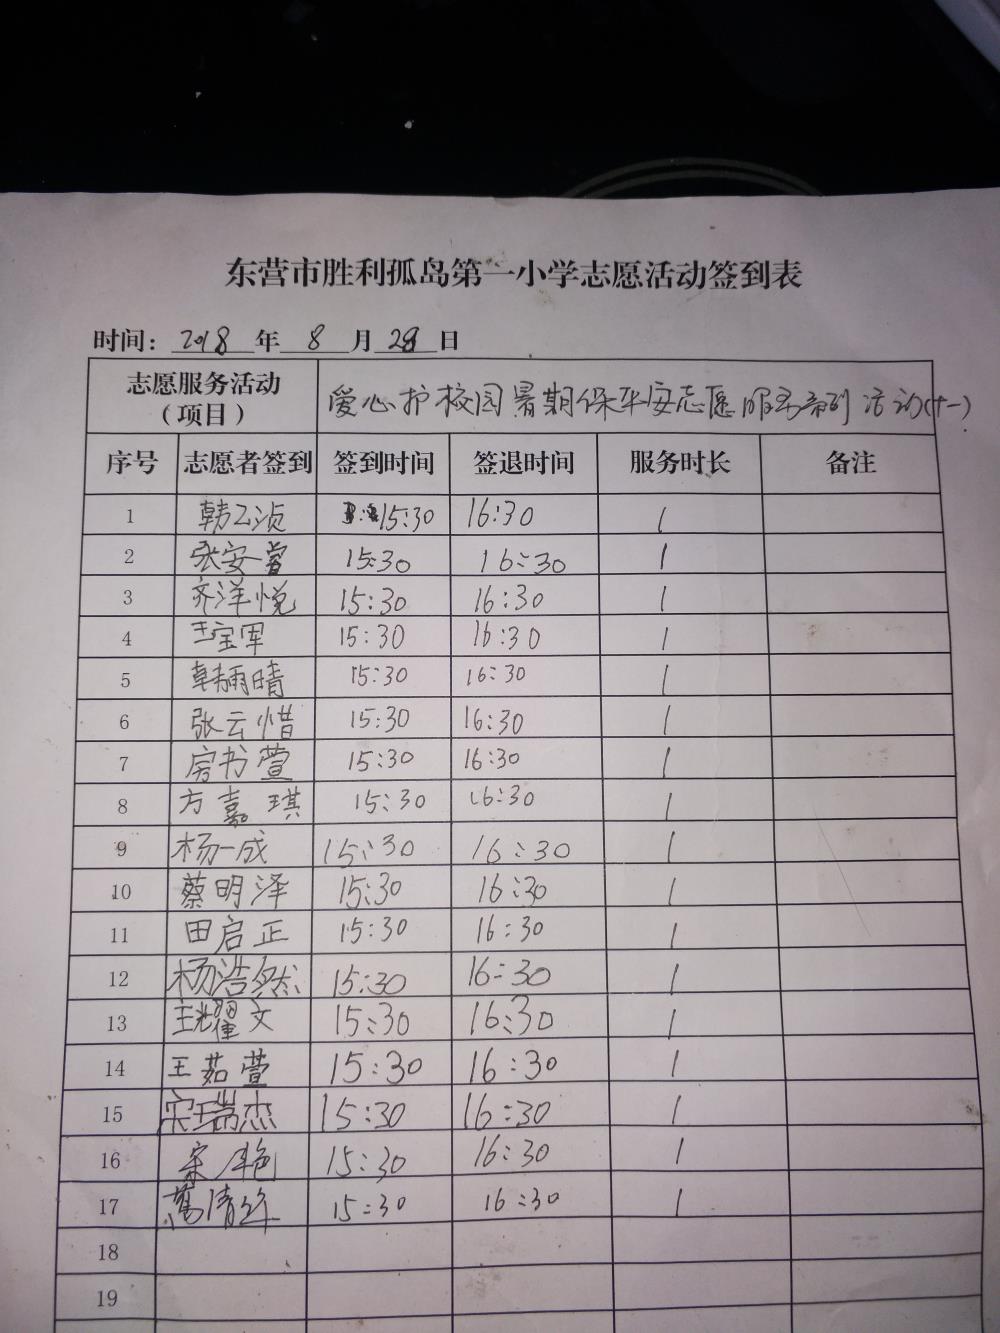 东营市胜利孤岛第一小学志愿活动签到表
时间：2018年8月28日
志愿服务活动（项目） 爱心护校园暑期保平安志愿服务系列活动(十一)
序号 志愿者签到 签到时间 签退时间 服务时长 备注
1 韩乙浈 15:30 16:30 1
2 张安 15:30 16:30 1
3 齐洋悦 15:30 16:30 1
4 王宝军 15:30 16:30 1
5 韩雨晴 15:30 16:30 1
6 张云惜 15:30 16:30 1
7 房书萱 15:30 16:30 1
8 方嘉琪 15:30 16:30 1
9 杨一成 15:30 16:30 1
10 蔡明泽 15:30 16:30 1
11 田启正 15:30 16:30 1
12 杨浩然 15:30 16:30 1
13 王耀文 15:30 16:30 1
14 王茹萱 15:30 16:30 1
15 宋瑞杰 15:30 16:30 1
16 宋艳 15:30 16:30 1
17 15:30 16:30 1
18
19